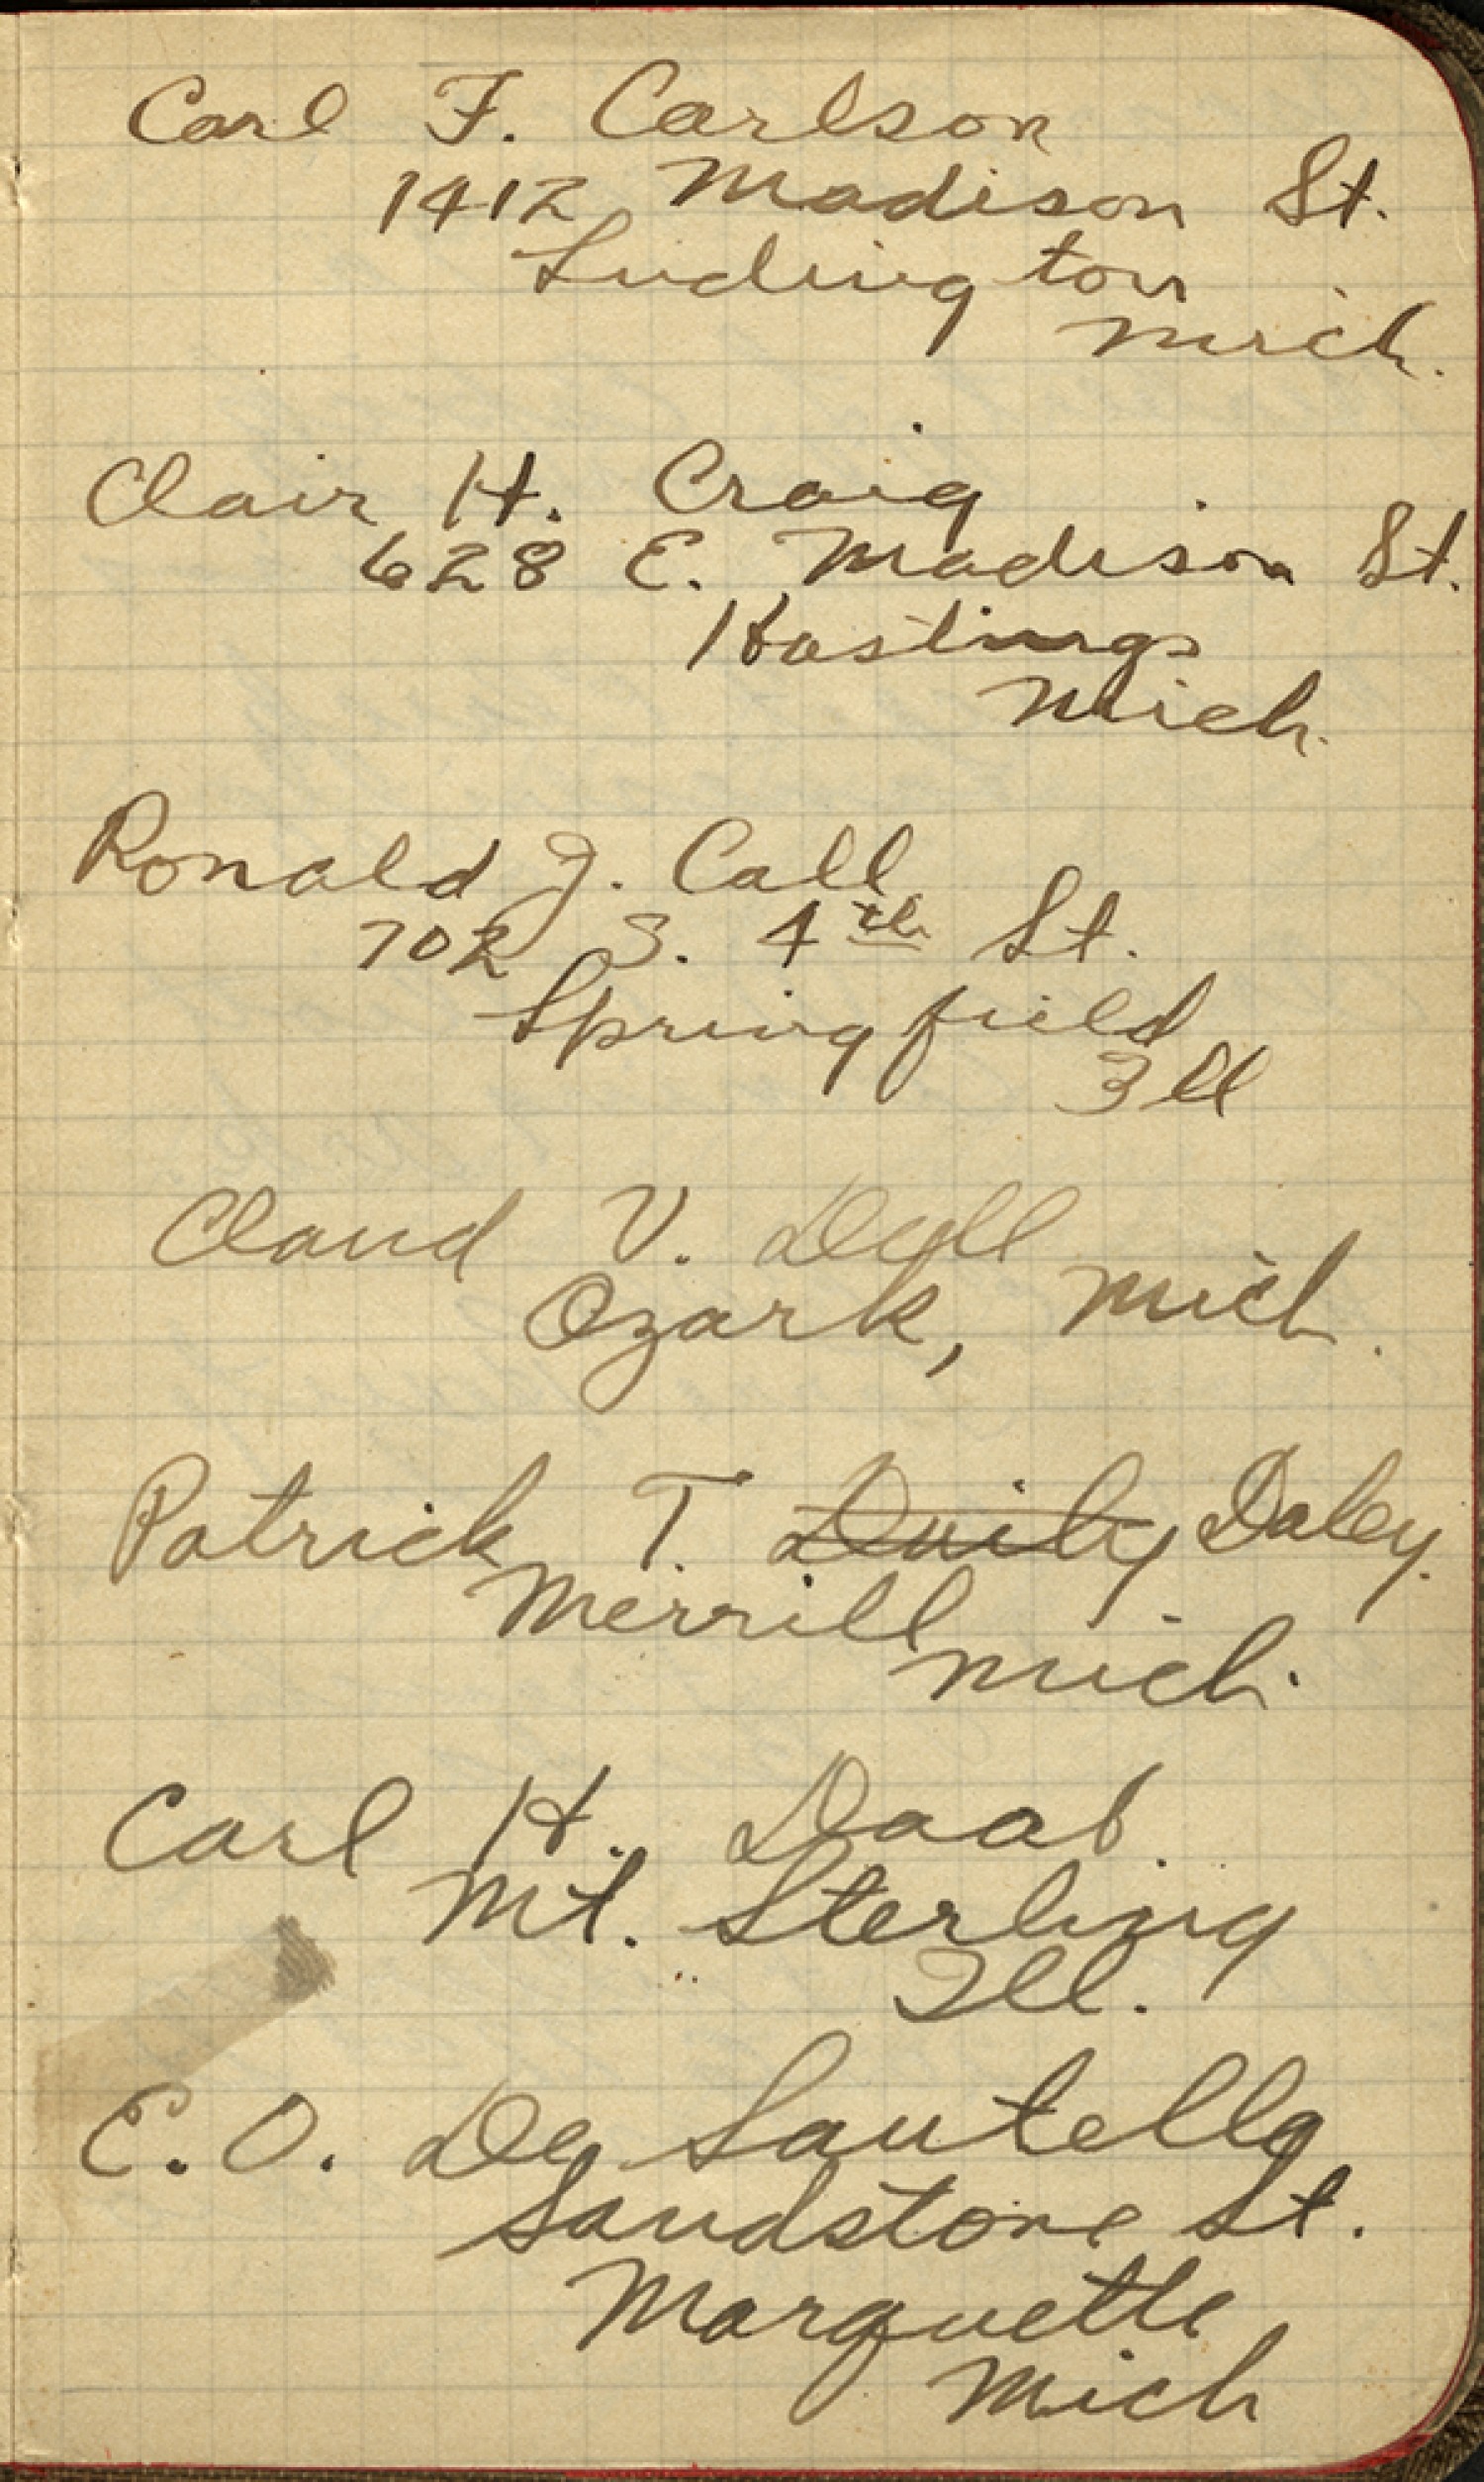 Carl F. Carlson
1412 Madison St.
Ludington
Mich.
Clair H. Craig
628 E. Madison St.
Hastings
Mich.
Ronald J. Call
702 S. 4th St.
Springfield
Ill
Claud V. Dell
Ozark, Mich.
Patrick T. Daily Daley.
Merrill
Mich.
Carl H. Daab
Mt. Sterling
Ill.
E. O. De Sautell
Sandstone St.
Marquette
Mich